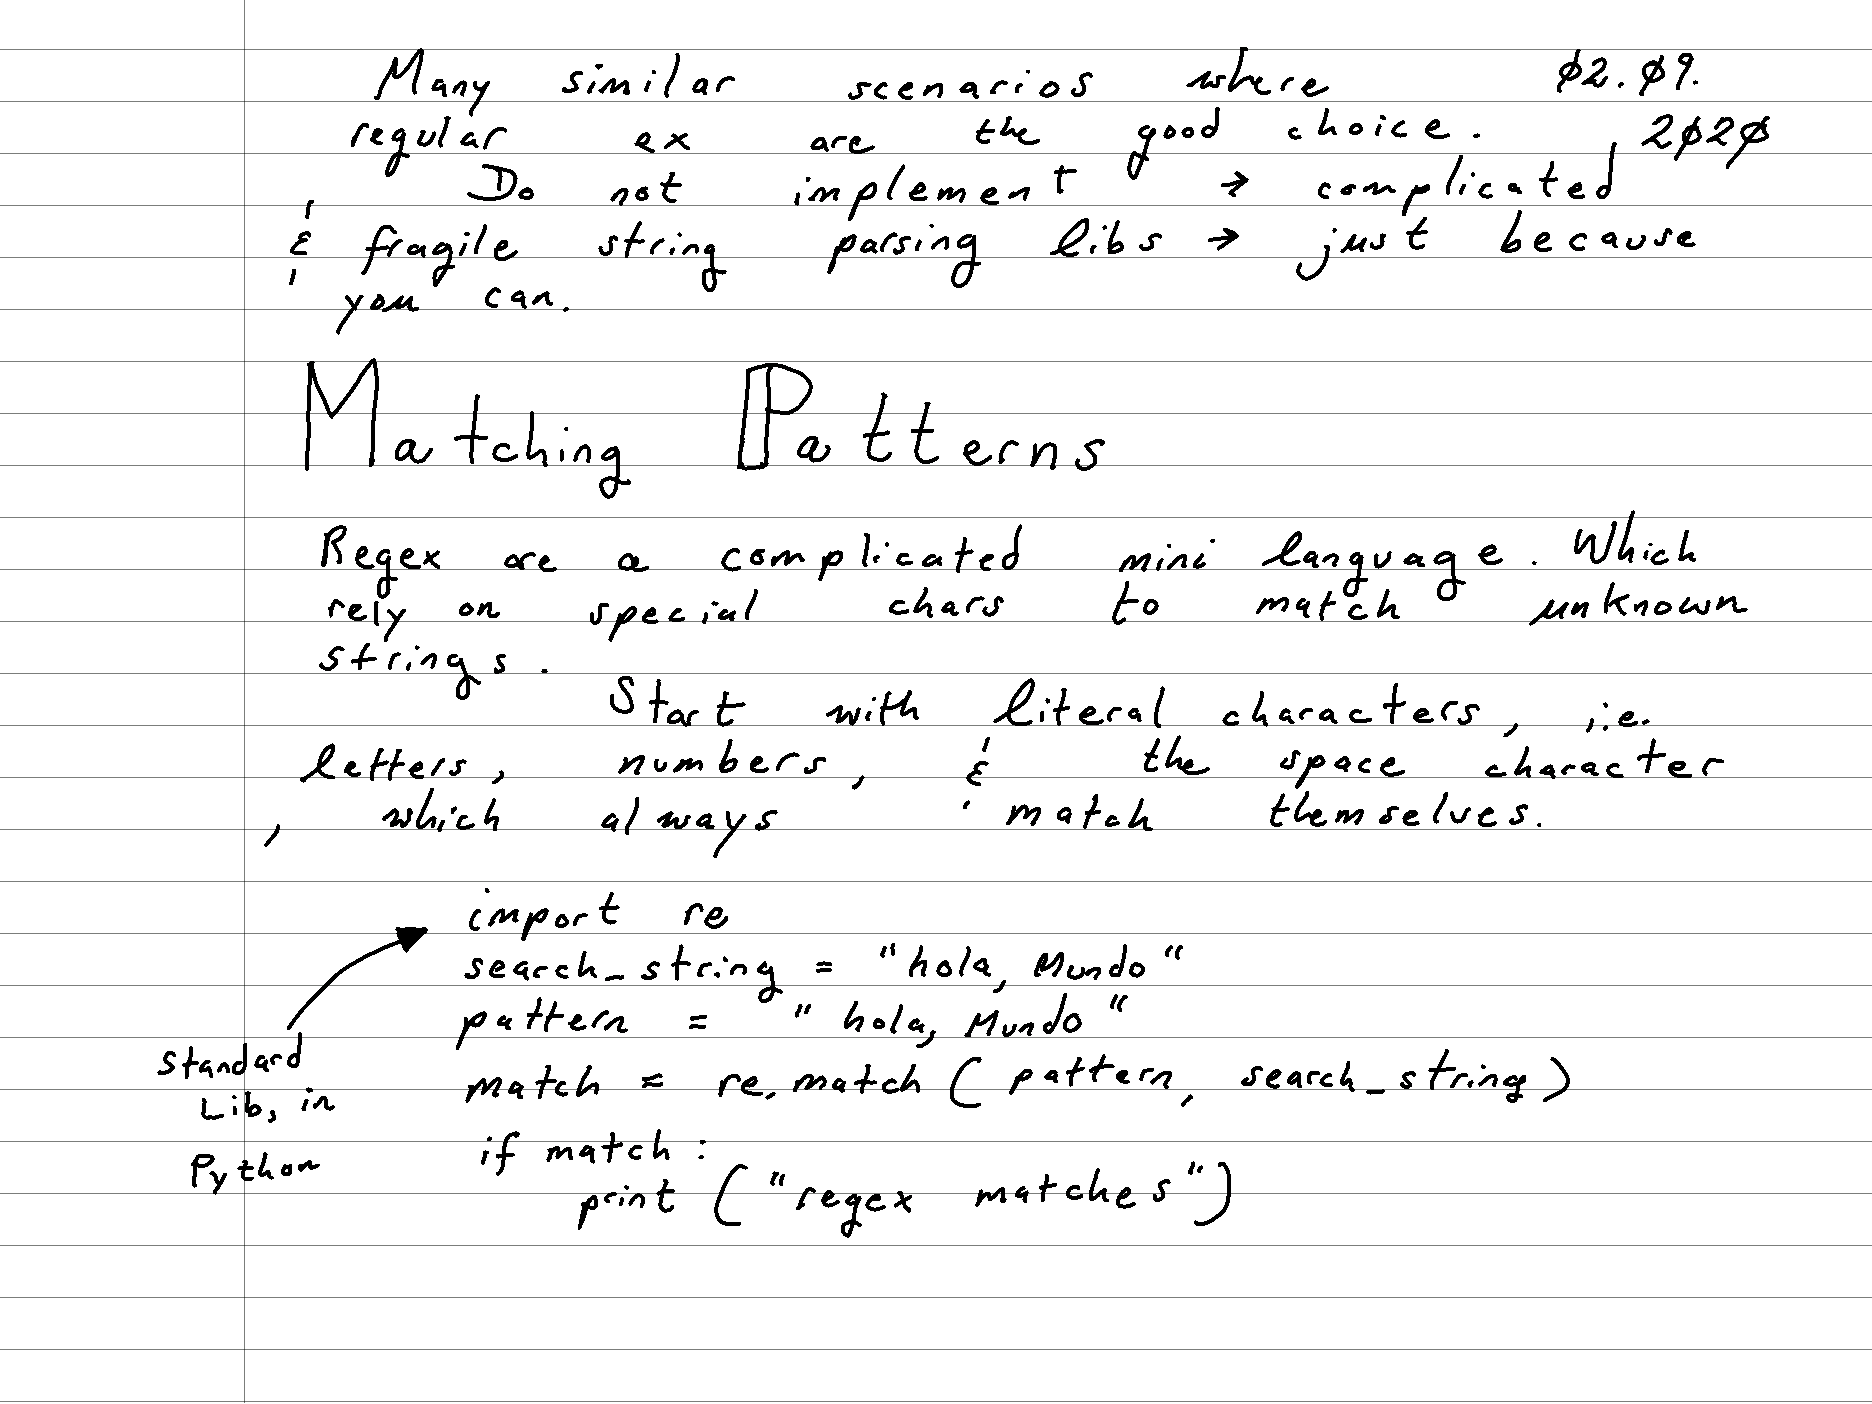 Many similar scenarios where ø2.ø9.
regular ex are the good choice. 2ø2ø
Do not implement → complicated
& fragile string parsing libs → just because
you can.
Matching Patterns
Regex are a complicated mini language. Which
rely on special chars to match unknown
strings.
Start with literal characters, i.e.
letters, numbers, & the space character
, which always match themselves.
import re
search_string = "hola, Mundo"
pattern = "hola, Mundo"
Standard
match = re.match(pattern, search_string)
Lib, in
if match:
Python
print("regex matches")